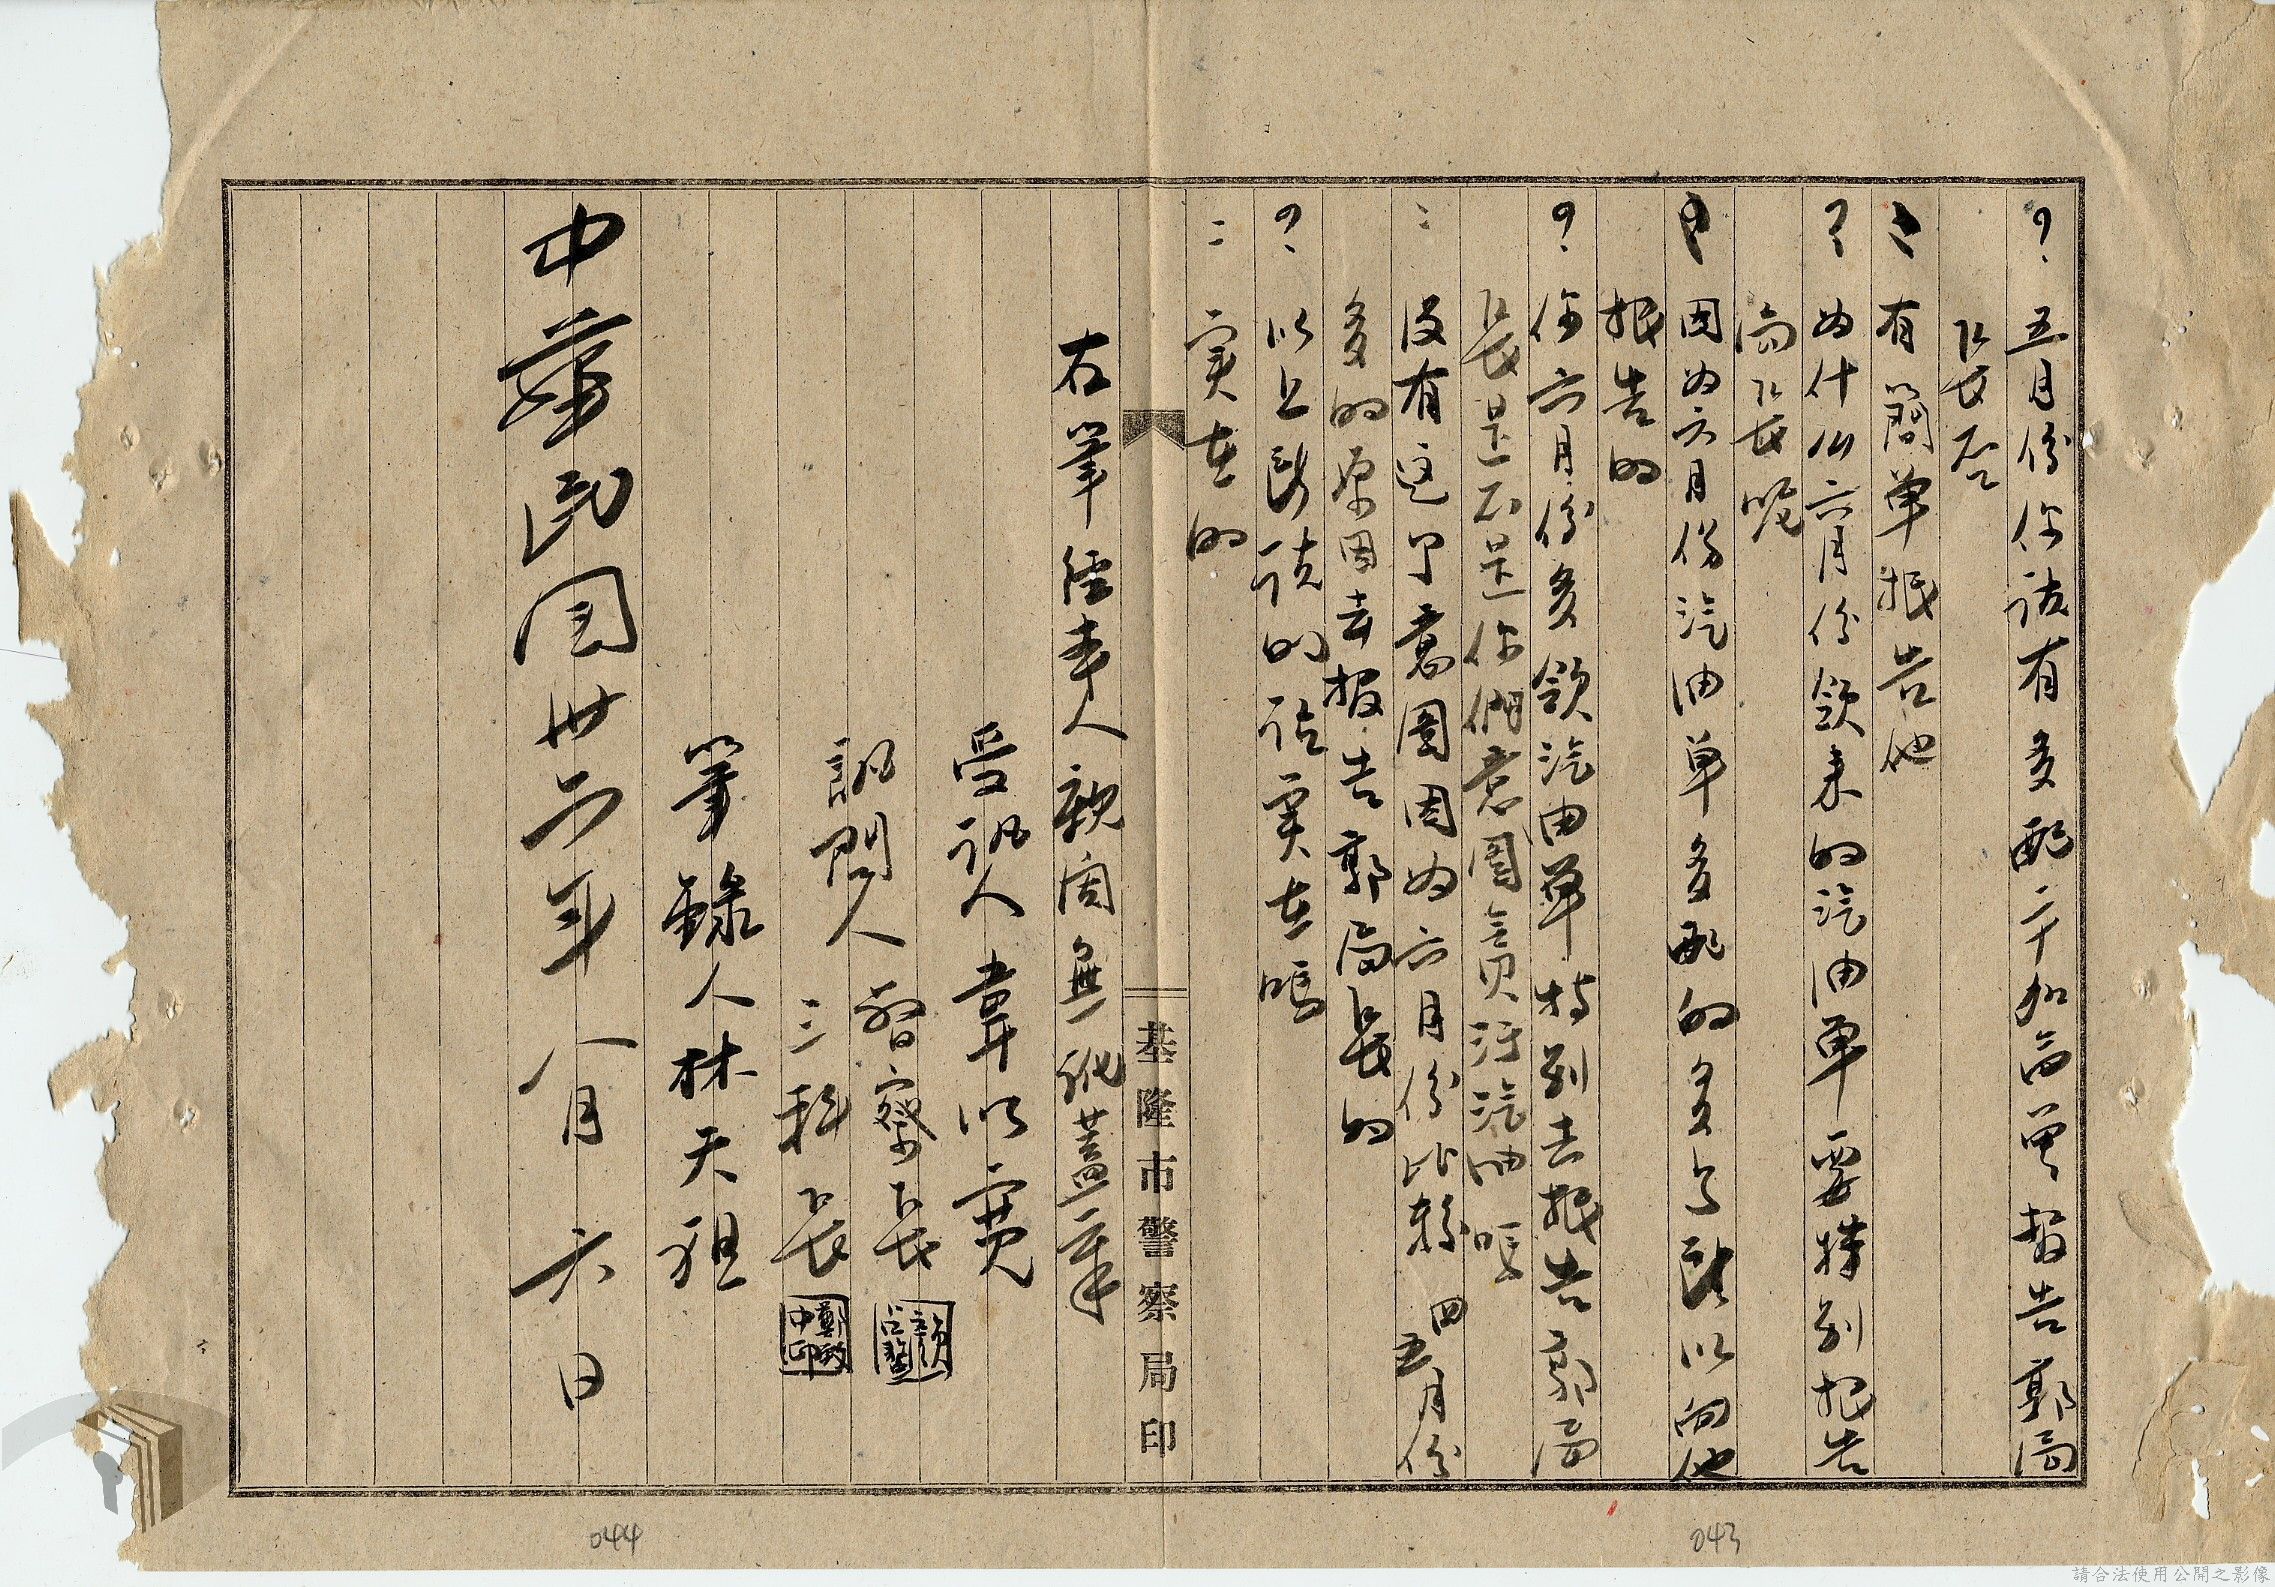 ?五月份你說有多配二十加侖曾報告郭局
長否
:有簡單報告他
?為什么六月份領来的汽油單要特別报告
局長呢
:因為六月份汽油单多配的多些所以向他
报告的
?你六月份多領汽油單特別去报告郭局
長是不是你們意圖貪汚汽油嗎
:没有这个意圖因為六月份比較四五月份
多的原因去报告郭局長的
?以上所說的話実在嗎
:実在的
基隆市警察局印
右筆經本人親閱無訛蓋章
受訊人韋以寬
訊問人督察長
三科長
筆錄人林天祖
中華民国卅六年八月六日
043
044
請合法使用公開之影像